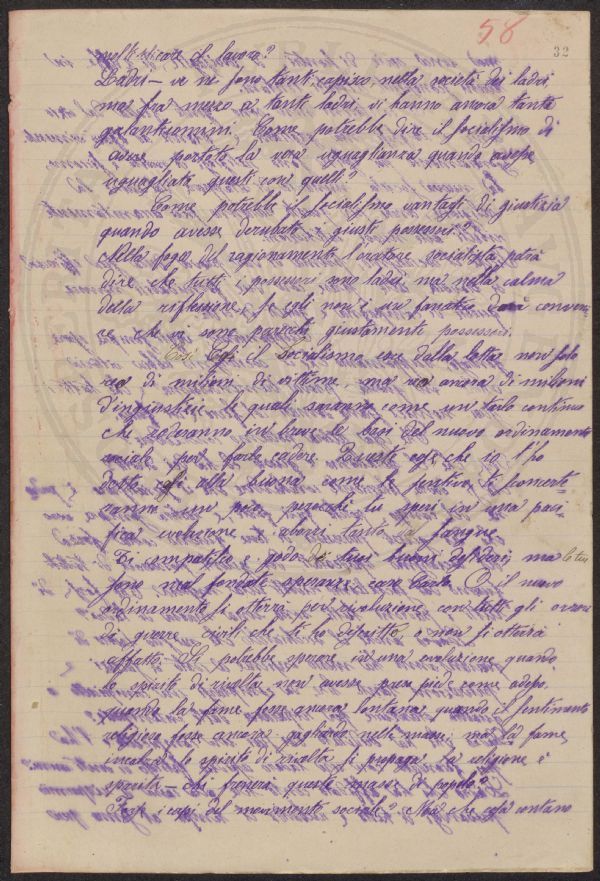 58
32
moltiplicare il lavoro?
Ladri — ve ne sono tanti, capisco, nella società dei ladri
ma fra mezzo a tanti ladri, vi hanno ancora tanti
galantuomini. Come potrebbe dire il socialismo di
avere portato la vera uguaglianza quando avesse
uguagliati questi con quelli?
Come potrebbe il socialismo vantarsi di giustizia
quando avesse derubati i giusti possessori?
Nella foga del ragionamento l'oratore socialista potrà
dire che tutti i possessori sono ladri ma nella calma
della riflessione, se egli non è un fanatico dovrà conveni
re che vi sono parecchi giustamente possessori.
il Socialismo esce dalla lotta non solo
reo di milioni di vittime, ma reo ancora di milioni
d'ingiustizie le quali saranno come un tarlo continuo
che roderanno in breve le basi del nuovo ordinamento
sociale per farlo cadere. Queste cose che io t'ho
dette così alla buona come le pensavo ti sconcerte-
ranno un poco, perocchè tu speri in una paci
fica evoluzione, aborri tanto il sangue.
Ti compatisco e godo dei tuoi buoni desideri, ma le tue
sono mal fondate speranze caro Carlo. O il nuovo
ordinamento si otterrà per rivoluzione con tutti gli orrori
di guerre civili che ti ho descritto o non si otterrà
affatto. Si potrebbe sperare in una evoluzione quando
lo spirito di rivolta non avesse preso piede come adesso,
quando la fame fosse ancora lontana quando il sentimento
religioso fosse ancora gagliardo nelle masse; ma la fame
incalza, lo spirito di rivolta si propaga, la religione è
sparita, chi frenerà queste masse di popolo?
Forse i capi del movimento sociale? Ma che cosa contano